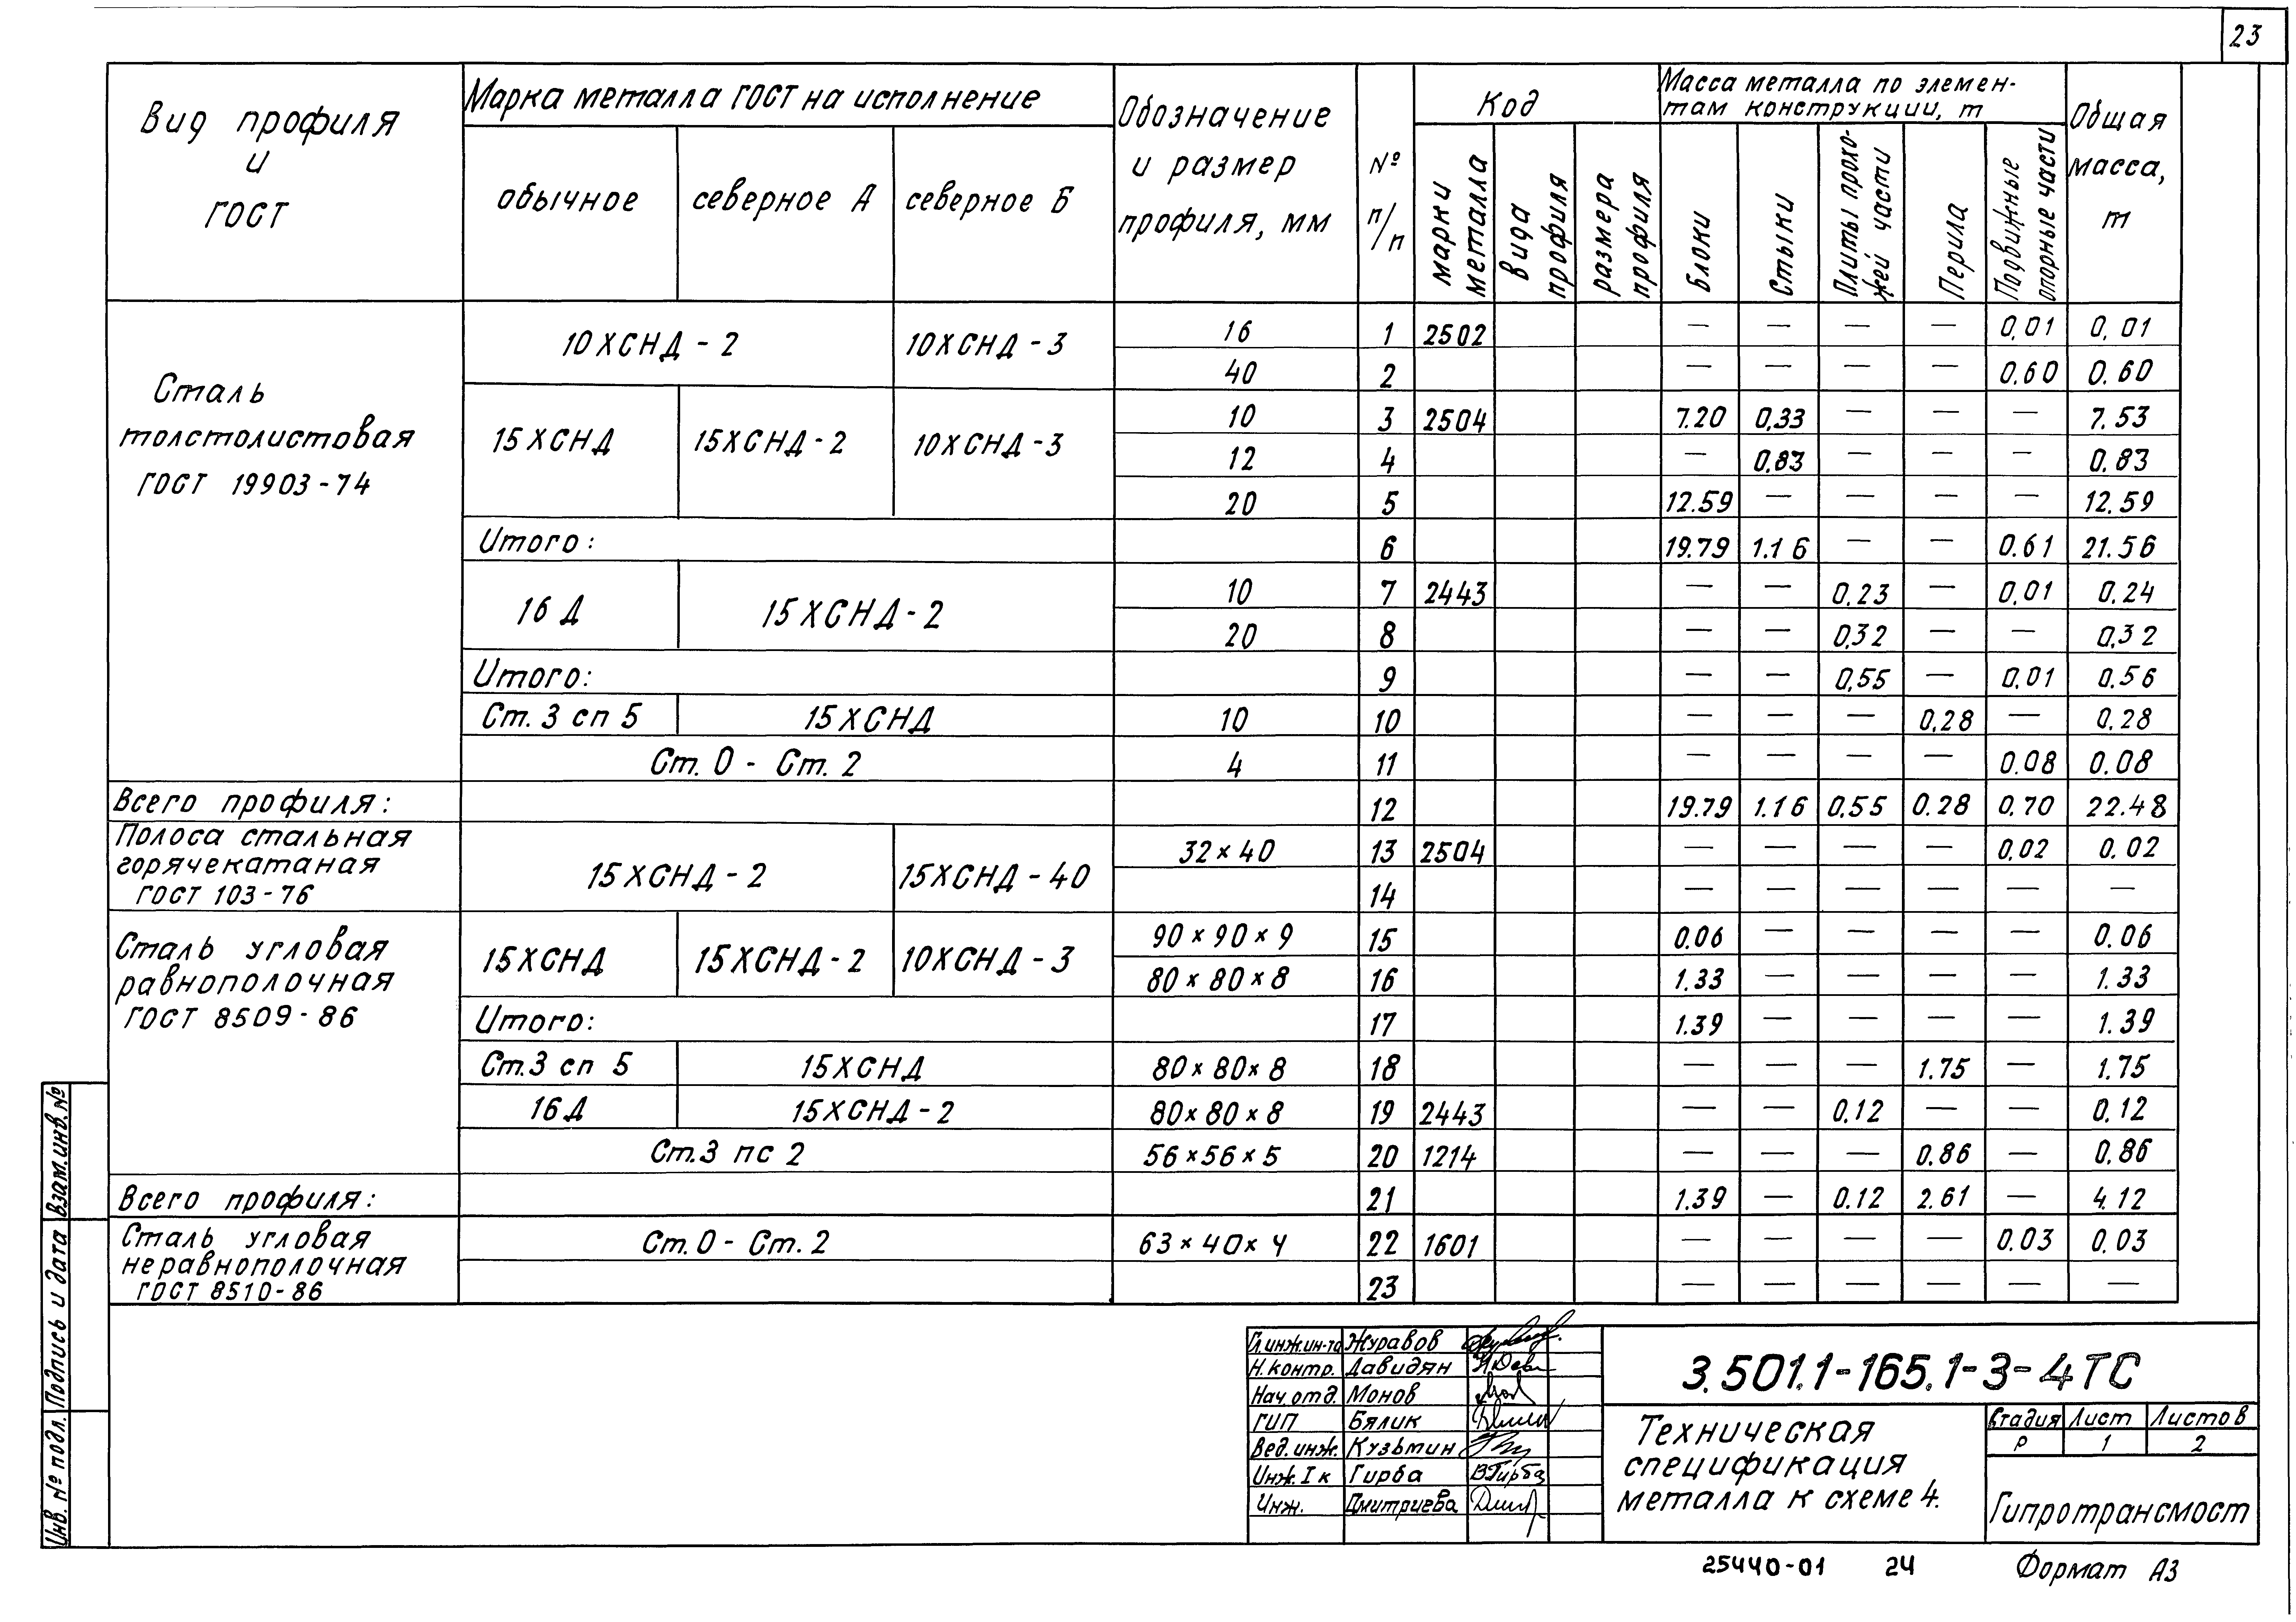 23
Вид профиля и ГОСТ
Марка металла ГОСТ на исполнение
обычное
северное А
северное Б
Обозначение и размер профиля, мм
№ п/п
Код
марки металла
вида профиля
размера профиля
Масса металла по элемен-
там конструкции, т
Блоки
Стыки
Плиты прохо-
жей части
Перила
Подвижные опорные части
Общая масса, т
Сталь
толстолистовая
ГОСТ 19903-74
10ХСНД-2 10ХСНД-3
16 1 2502 — — — — 0,01 0,01
40 2 — — — — 0.60 0.60
15ХСНД 15ХСНД-2 10ХСНД-3
10 3 2504 7.20 0,33 — — — 7.53
12 4 — 0.83 — — — 0.83
20 5 12.59 — — — — 12.59
Итого: 6 19.79 1.16 — — 0.61 21.56
16Д 15ХСНД-2
10 7 2443 — — 0,23 — 0.01 0.24
20 8 — — 0,32 — — 0,32
Итого: 9 — — 0,55 — 0.01 0.56
Ст. 3 сп 5 15ХСНД 10 10 — — — 0.28 — 0.28
Ст. 0 - Ст. 2 4 11 — — — — 0.08 0.08
Всего профиля: 12 19.79 1.16 0.55 0.28 0,70 22.48
Полоса стальная
горячекатаная
ГОСТ 103-76
15ХСНД-2 15ХСНД-40
32×40 13 2504 — — — — 0,02 0.02
14 — — — — — —
Сталь угловая
равнополочная
ГОСТ 8509-86
15ХСНД 15ХСНД-2 10ХСНД-3
90×90×9 15 0.06 — — — — 0.06
80×80×8 16 1.33 — — — — 1.33
Итого: 17 1.39 — — — — 1.39
Ст.3 сп 5 15ХСНД 80×80×8 18 — — — 1.75 — 1.75
16Д 15ХСНД-2 80×80×8 19 2443 — — 0.12 — — 0.12
Ст.3 пс 2 56×56×5 20 1214 — — — 0.86 — 0.86
Всего профиля: 21 1.39 — 0.12 2.61 — 4.12
Сталь угловая
неравнополочная
ГОСТ 8510-86
Ст.0 - Ст. 2 63×40×4 22 1601 — — — — 0.03 0.03
23 — — — — — —
Взам.инв.№
Подпись и дата
Инв. № подл.
Гл.инж.ин-та Журавов
Н.контр. Давидян
Нач.отд. Монов
ГИП Бялик
Вед.инж. Кузьмин
Инж. I к Гирба В Гирба
Инж. Дмитриева
3.501.1-165.1-3-4ТС
Техническая
спецификация
металла к схеме 4.
Стадия Лист Листов
Р 1 2
Гипротрансмост
25440-01 24 Формат А3